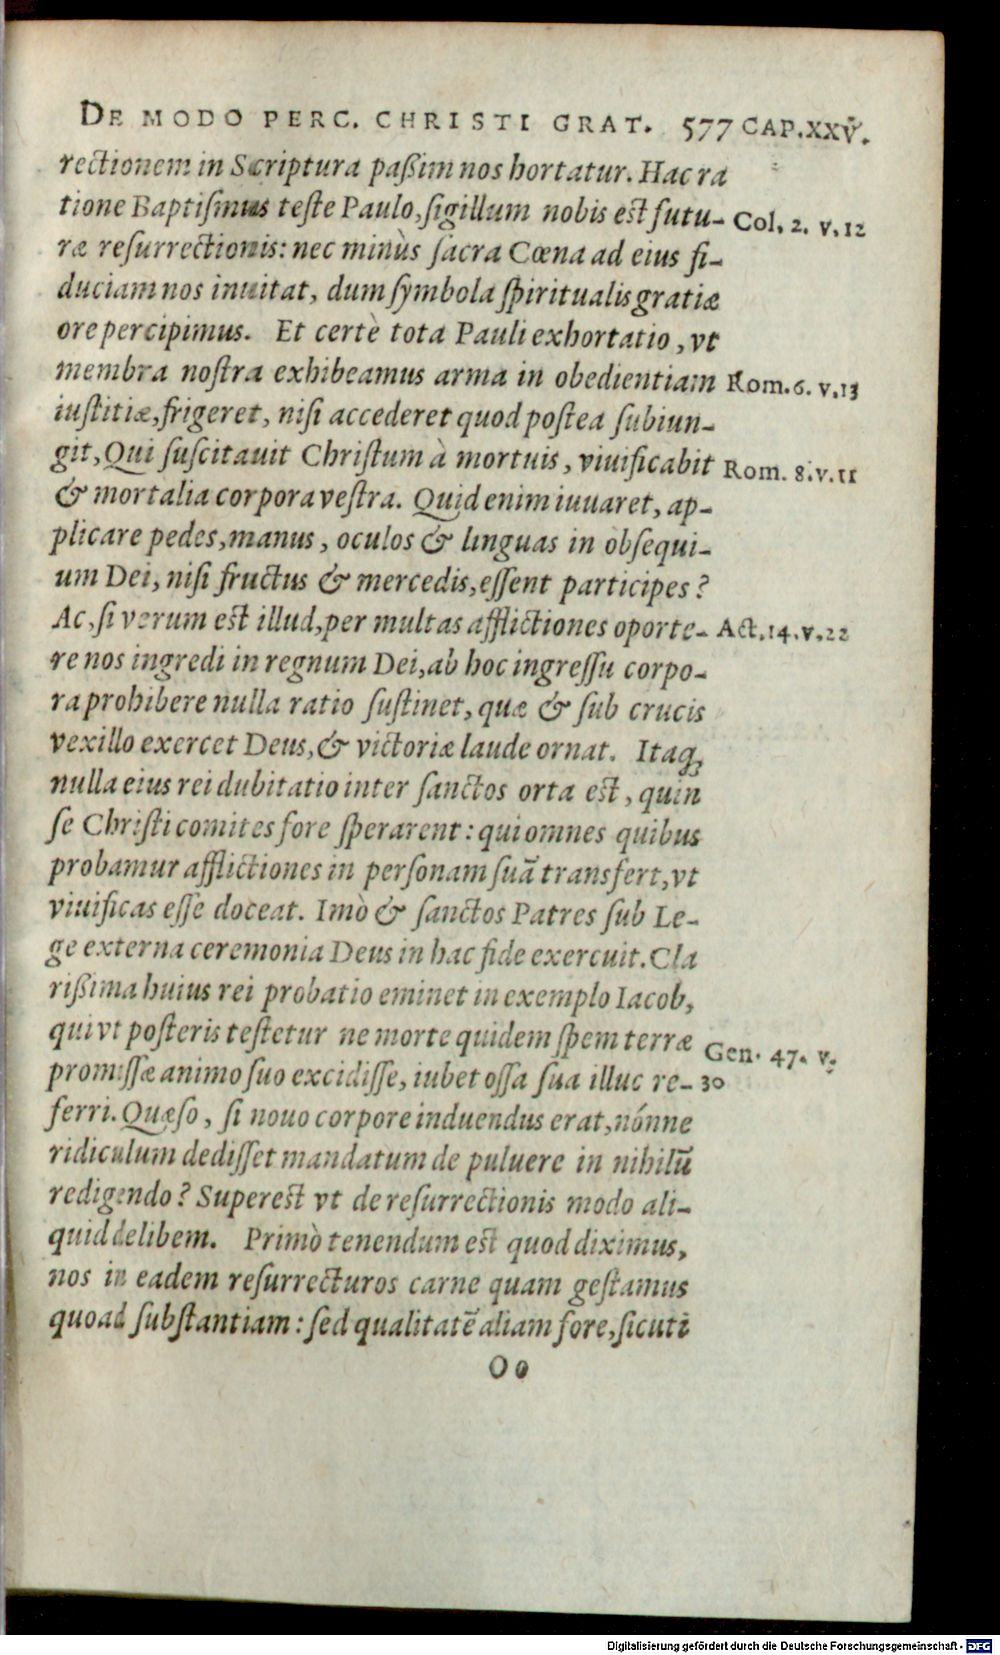 DE MODO PERC. CHRISTI GRAT. 577 CAP.XXV.
rectionem in Scriptura paßim nos hortatur. Hac ra
tione Baptiſmus teſte Paulo, ſigillum nobis est futu- Col. 2. v. 12
ræ reſurrectionis: nec minùs ſacra Cœna ad eius fi-
duciam nos inuitat, dum ſymbola ſpiritualis gratiæ
ore percipimus. Et certè tota Pauli exhortatio, vt
membra noſtra exhibeamus arma in obedientiam Rom. 6. v. 13
iuſtitiæ, frigeret, niſi accederet quod poſtea ſubiun-
git, Qui ſuſcitauit Chriſtum à mortuis, viuificabit Rom. 8. v. 11
& mortalia corpora veſtra. Quid enim iuuaret, ap-
plicare pedes, manus, oculos & linguas in obſequi-
um Dei, niſi fructus & mercedis, eſſent participes?
Ac, ſi verum est illud, per multas afflictiones oporte- Act. 14. v. 22
re nos ingredi in regnum Dei, ab hoc ingreſſu corpo-
ra prohibere nulla ratio ſuſtinet, quæ & ſub crucis
vexillo exercet Deus, & victoriæ laude ornat. Itaq;
nulla eius rei dubitatio inter ſanctos orta est, quin
ſe Chriſti comites fore ſperarent: qui omnes quibus
probamur afflictiones in perſonam ſuã transfert, vt
viuificas eſſe doceat. Imò & ſanctos Patres ſub Le-
ge externa ceremonia Deus in hac fide exercuit. Cla
rißima huius rei probatio eminet in exemplo Iacob,
qui vt poſteris teſtetur ne morte quidem ſpem terræ Gen. 47. v.
promiſſæ animo ſuo excidiſſe, iubet oſſa ſua illuc re- 30
ferri. Quæſo, ſi nouo corpore induendus erat, nónne
ridiculum dediſſet mandatum de puluere in nihilũ
redigendo? Superest vt de reſurrectionis modo ali-
quid delibem. Primò tenendum est quod diximus,
nos in eadem reſurrecturos carne quam geſtamus
quoad ſubſtantiam: ſed qualitatẽ aliam fore, ſicuti
Oo
Digitalisierung gefördert durch die Deutsche Forschungsgemeinschaft - DFG